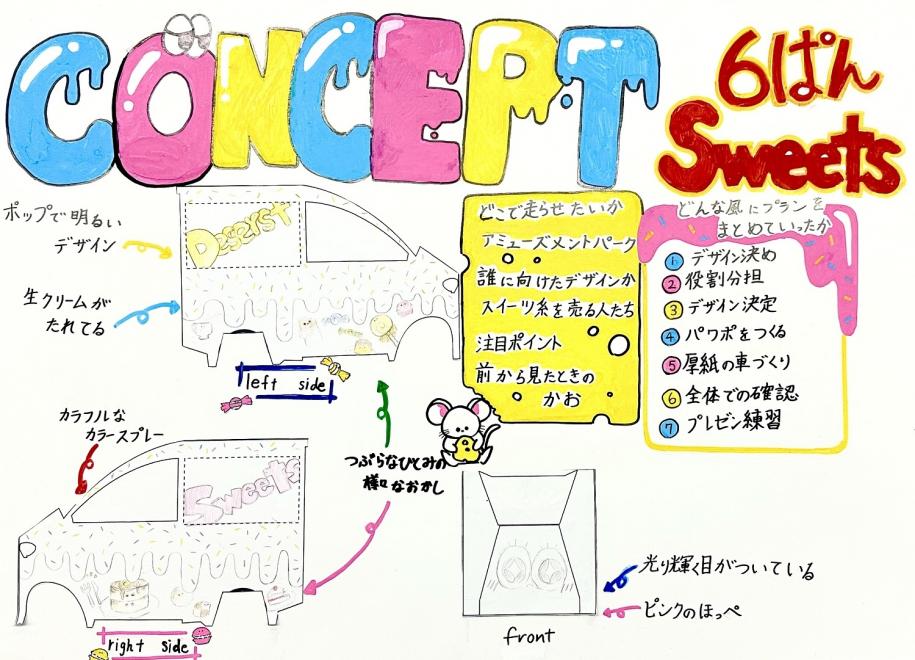 CONCEPT
6ぱん
Sweets
ポップで明るい
デザイン
生クリームが
たれてる
Deserst
left side
どこで走らせたいか
アミューズメントパーク
誰に向けたデザインか
スイーツ系を売る人たち
注目ポイント
前から見たときの
かお
どんな風にプランを
まとめていったか
1 デザイン決め
2 役割分担
3 デザイン決定
4 パワポをつくる
5 厚紙の車づくり
6 全体での確認
7 プレゼン練習
カラフルな
カラースプレー
Sweets
right side
つぶらなひとみの
様々なおかし
front
光り輝く目がついている
ピンクのほっぺ